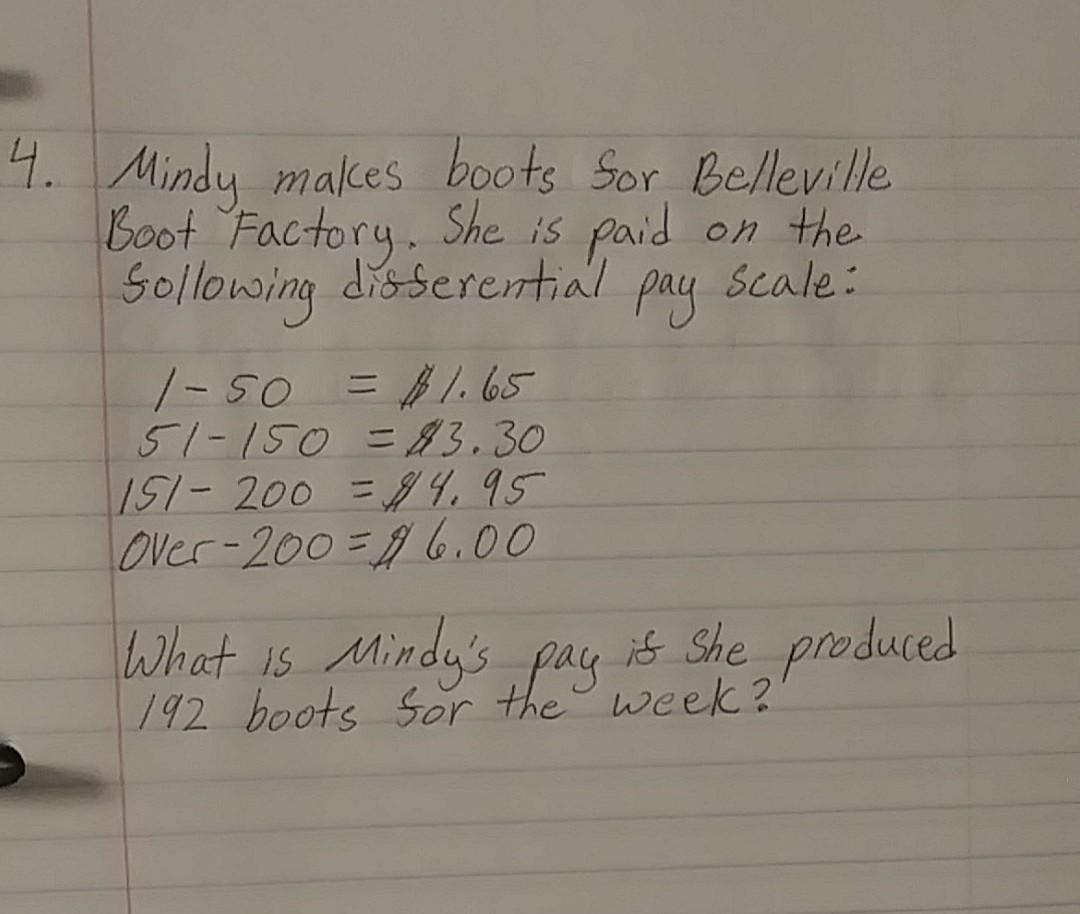 4. Mindy makes boots for Belleville
Boot Factory. She is paid on the
following differential pay scale:
1-50 = $1.65
51-150 = $3.30
151-200 = $4.95
Over-200 = $6.00
What is Mindy's pay if She produced
192 boots for the week?